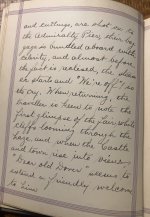 and cuttings, are shot on to
the Admiralty Pier, their bag-
gage is bundled aboard with
celerity, and almost before
the fact is realised, the steam
er starts and "We're off" is
the cry. When returning, the
traveller is keen to note the
first glimpse of the fair white
cliffs looming through the
haze, and when the Castle
and town rise into view,
"Dear old Dover" seems to
extend a friendly welcome
to him